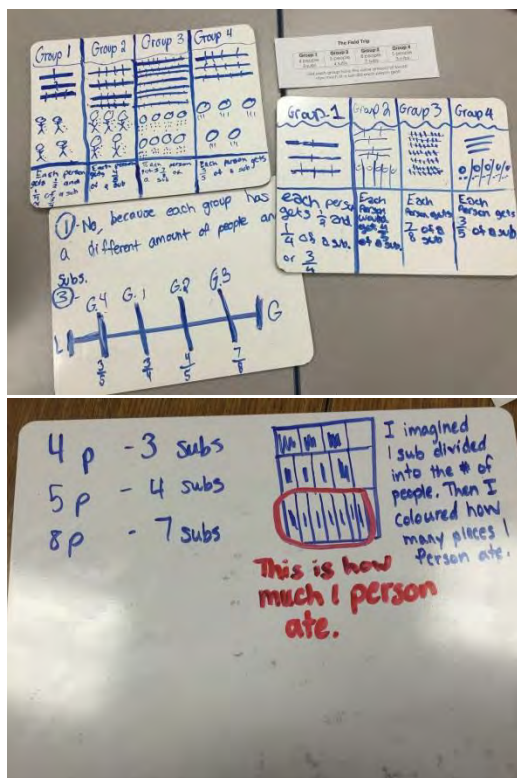 Group 1
Group 2
Group 3
Group 4
Each person
gets 1/2 and
1/4 of a sub
Each person
gets 4/5
of a sub
Each person
gets 7/8 of
a sub
Each person gets
3/5 of a sub
The Field Trip
Group 1
Group 2
Group 3
Group 4
4 people
5 people
8 people
5 people
3 subs
4 subs
7 subs
3 subs
Group 1
Group 2
Group 3
Group 4
each person
gets 1/2 and
1/4 of a sub.
or 3/4
Each
Person
would
get 4/5
of a sub
Each
Person gets
7/8 of a
sub
Each
Person gets
3/5 of a sub
1 - No, because each group has
a different amount of people and
subs.
3 -
G.4 G.1 G.2 G.3
L G
3/5 3/4 4/5 7/8
4 p - 3 subs
5 p - 4 subs
8p - 7 subs
I imagined
1 sub divided
into the # of
people. Then I
coloured how
many pieces 1
Person ate.
This is how
much 1 person
ate.